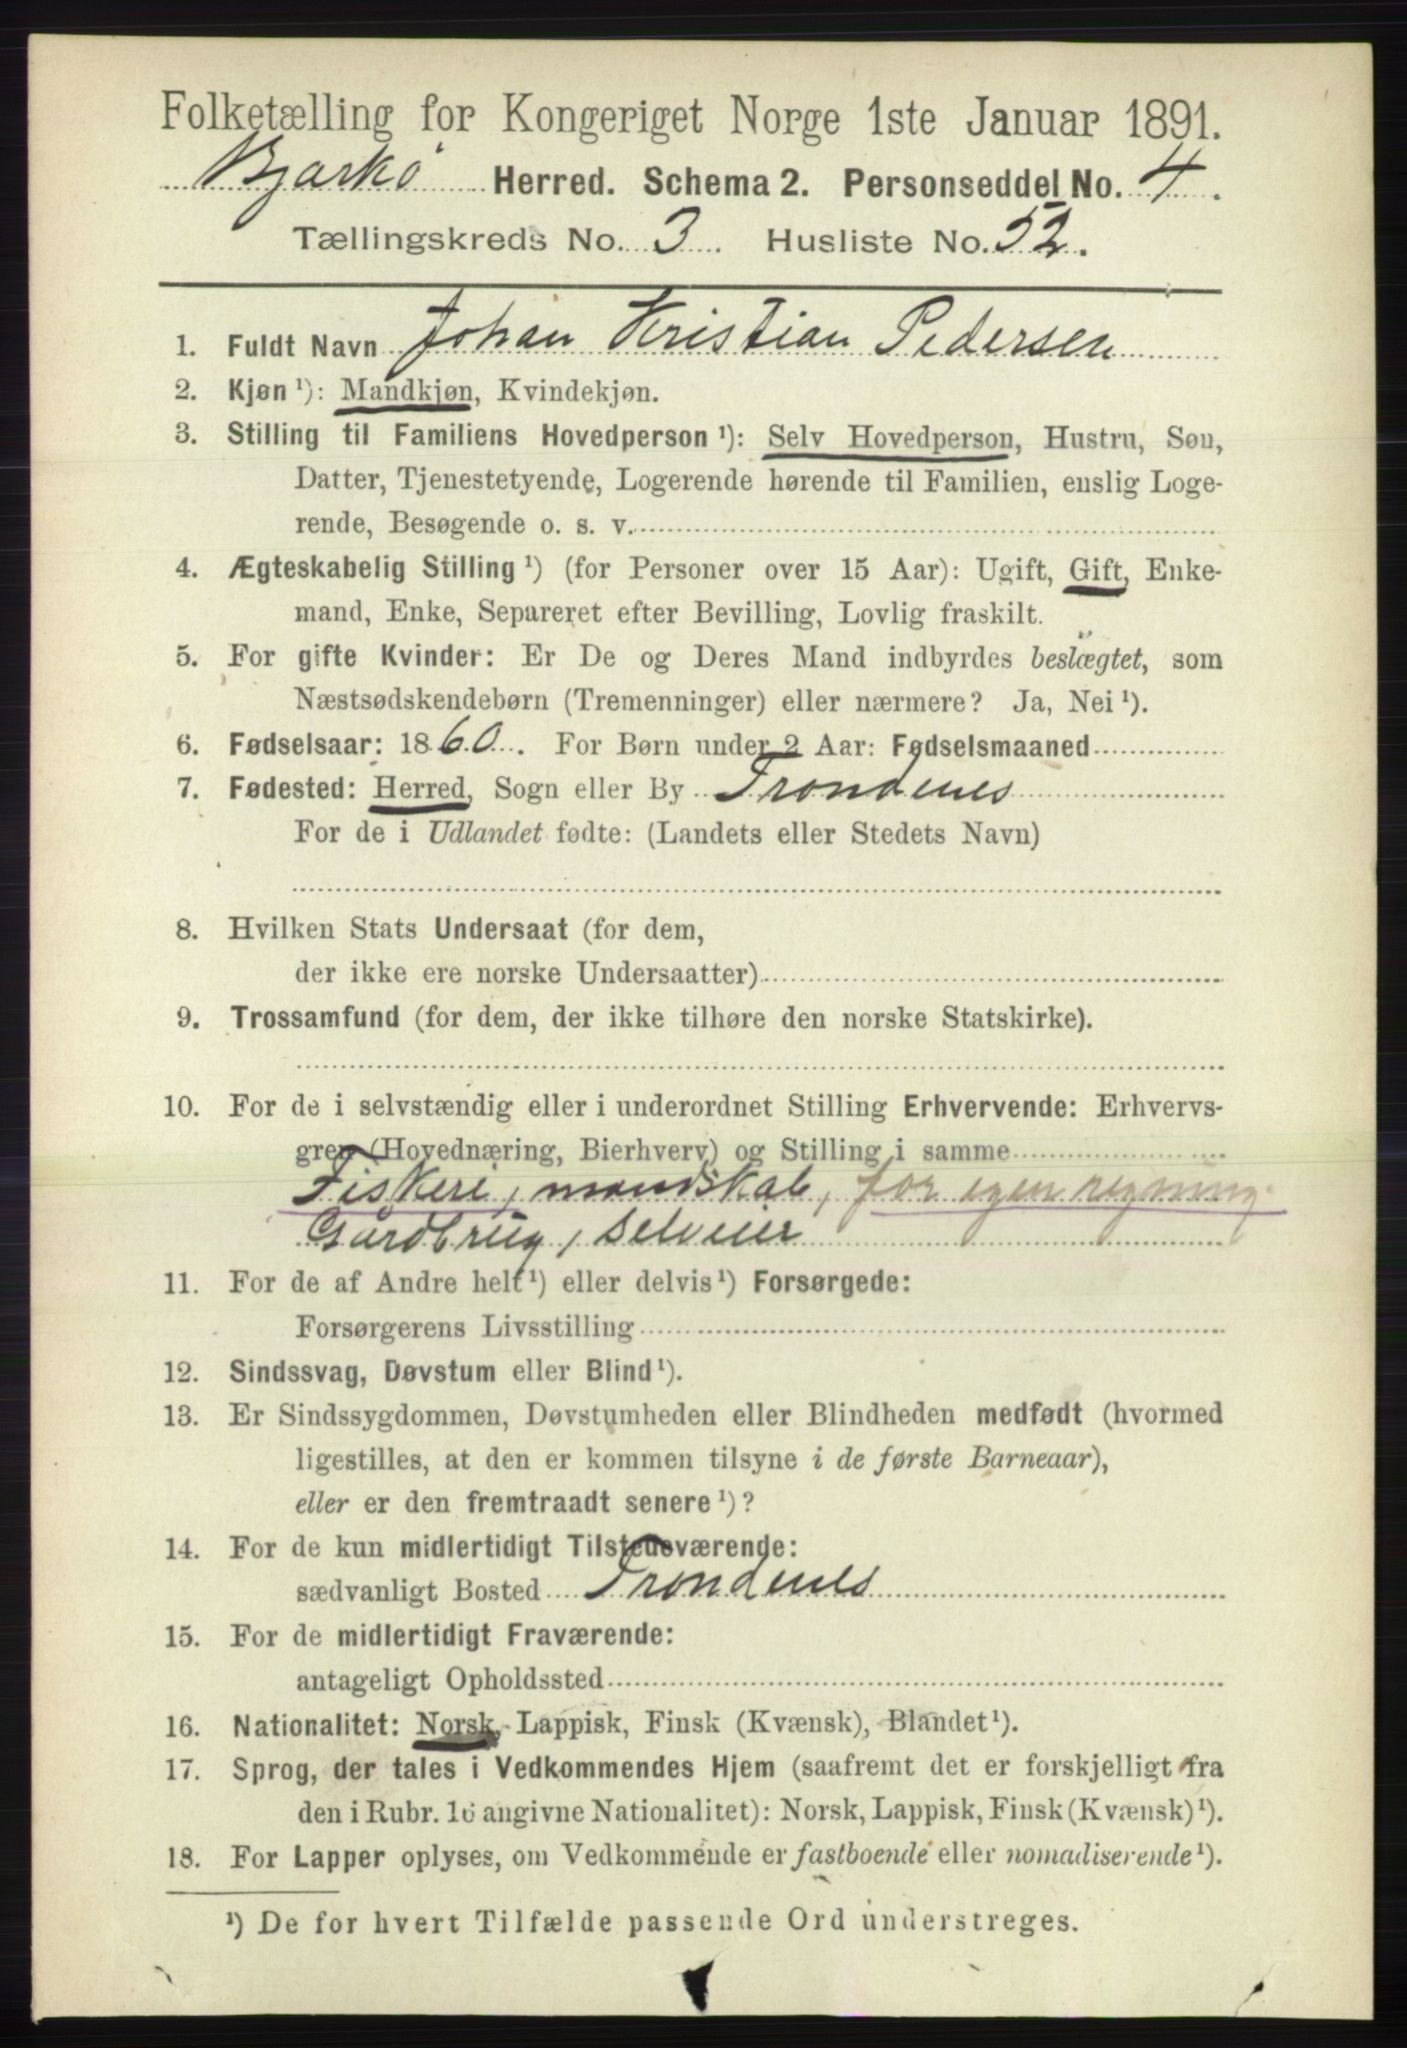 Folketælling for Kongeriget Norge 1ste Januar 1891.
Bjarkö Herred. Schema 2. Personseddel No. 4.
Tællingskreds No. 3. Husliste No. 52.
1. Fuldt Navn Johan Kristian Pedersen
2. Kjøn ¹): Mandkjøn, Kvindekjøn.
3. Stilling til Familiens Hovedperson ¹): Selv Hovedperson, Hustru, Søn,
Datter, Tjenestetyende, Logerende hørende til Familien, enslig Loge-
rende, Besøgende o. s. v.
4. Ægteskabelig Stilling ¹) (for Personer over 15 Aar): Ugift, Gift, Enke-
mand, Enke, Separeret efter Bevilling, Lovlig fraskilt.
5. For gifte Kvinder: Er De og Deres Mand indbyrdes beslægtet, som
Næstsødskendebørn (Tremenninger) eller nærmere? Ja, Nei ¹).
6. Fødselsaar: 1860. For Børn under 2 Aar: Fødselsmaaned
7. Fødested: Herred, Sogn eller By Trondenes
For de i Udlandet fødte: (Landets eller Stedets Navn)
8. Hvilken Stats Undersaat (for dem,
der ikke ere norske Undersaatter)
9. Trossamfund (for dem, der ikke tilhøre den norske Statskirke).
10. For de i selvstændig eller i underordnet Stilling Erhvervende: Erhvervs-
gren (Hovednæring, Bierhverv) og Stilling i samme
Fiskeri, mandskab, for egen regning.
Gårdbrug, selveier
11. For de af Andre helt ¹) eller delvis ¹) Forsørgede:
Forsørgerens Livsstilling
12. Sindssvag, Døvstum eller Blind ¹).
13. Er Sindssygdommen, Døvstumheden eller Blindheden medfødt (hvormed
ligestilles, at den er kommen tilsyne i de første Barneaar),
eller er den fremtraadt senere ¹)?
14. For de kun midlertidigt Tilstedeværende:
sædvanligt Bosted Trondenes
15. For de midlertidigt Fraværende:
antageligt Opholdssted
16. Nationalitet: Norsk, Lappisk, Finsk (Kvænsk), Blandet ¹).
17. Sprog, der tales i Vedkommendes Hjem (saafremt det er forskjelligt fra
den i Rubr. 16 angivne Nationalitet): Norsk, Lappisk, Finsk (Kvænsk) ¹).
18. For Lapper oplyses, om Vedkommende er fastboende eller nomadiserende ¹).
¹) De for hvert Tilfælde passende Ord understreges.